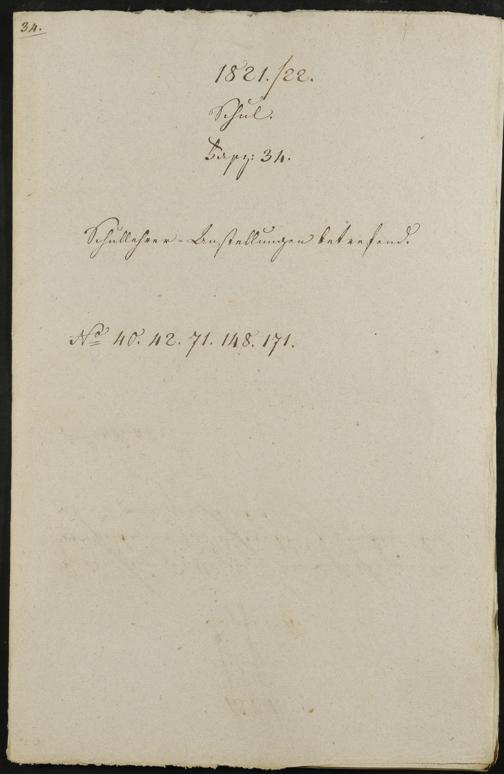 34.
1821./22.
Schul.
34.
Schullehrer-Anstellungen betreffend.
No 40. 42. 71. 148. 171.